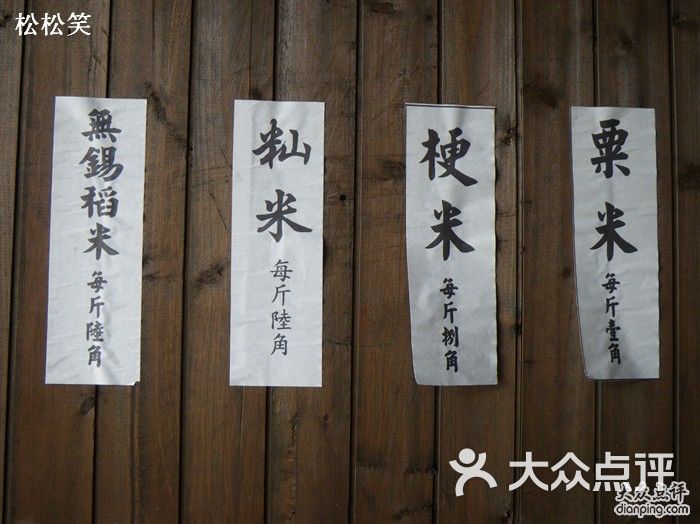 松松笑
無錫稻米 每斤陸角
籼米 每斤陸角
梗米 每斤捌角
粟米 每斤壹角
大众点评
大众点评
dianping.com